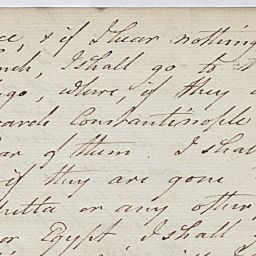 , & if I hear nothing
I shall go to
, where, if they
Constantinople
of them. I shall
if they are gone
or any other
or Egypt, I shall